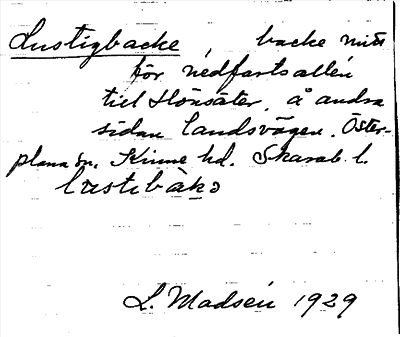 Lustigbacke, backe mitt
för nedfartsallén
till Hönsäter, å andra
sidan landsvägen. Öster-
plana sn. Kinne hd. Skarab. l.
L. Madsén 1929